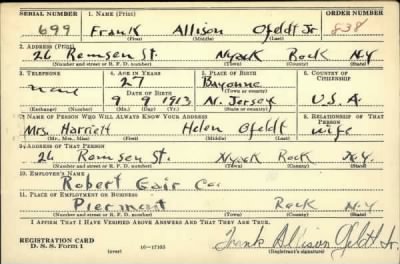 SERIAL NUMBER 1. NAME (Print) ORDER NUMBER
699 Frank Allison Ofeldt Jr 838
(First) (Middle) (Last)
2. ADDRESS (Print)
26 Remsen St. Nyack Rock N.Y
(Number and street or R. F. D. number) (Town) (County) (State)
3. TELEPHONE 4. AGE IN YEARS 5. PLACE OF BIRTH 6. COUNTRY OF CITIZENSHIP
none 27 Bayonne
DATE OF BIRTH (Town or county)
9 9 1913 N. Jersey U.S.A.
(Exchange) (Number) (Mo.) (Day) (Yr.) (State or country)
7. NAME OF PERSON WHO WILL ALWAYS KNOW YOUR ADDRESS 8. RELATIONSHIP OF THAT PERSON
Mrs. Harriett Helen Ofeldt wife
(Mr., Mrs., Miss) (First) (Middle) (Last)
9. ADDRESS OF THAT PERSON
26 Remsen St. Nyack Rock N.Y.
(Number and street or R. F. D. number) (Town) (County) (State)
10. EMPLOYER'S NAME
Robert Gair Co.
11. PLACE OF EMPLOYMENT OR BUSINESS
Piermont Rock N Y
(Number and street or R. F. D. number) (Town) (County) (State)
I AFFIRM THAT I HAVE VERIFIED ABOVE ANSWERS AND THAT THEY ARE TRUE.
REGISTRATION CARD
D. S. S. Form 1 (over) 16—17105 Frank Allison Ofeldt Jr.
(Registrant's signature)